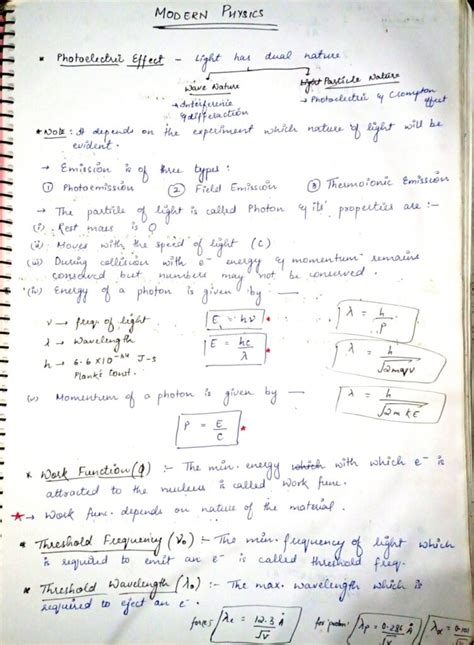 MODERN PHYSICS
* Photoelectric Effect - Light has dual nature
Wave Nature
Particle Nature
→ Interference & diffraction
→ Photoelectric & Crompton effect
* Note : It depends on the experiment which nature of light will be
evident.
→ Emission is of three types :
① Photoemission ② Field Emission ③ Thermoionic Emission
→ The particle of light is called Photon & its' properties are :-
(i) Rest mass is 0
(ii) Moves with the speed of light (C)
(iii) During collision with e⁻ energy & momentum remains
conserved but numbers may not be conserved.
(iv) Energy of a photon is given by —
ν → freq. of light
λ → Wavelength
h → 6.6 X10⁻³⁴ J-S
Plank's Const.
E = hν *
E = hc/λ *
λ = h/P
λ = h/√2mqV
λ = h/√2m KE
(v) Momentum of a photon is given by —
P = E/C *
* Work Function(φ) :- The min. energy which with which e⁻ is
attracted to the nucleus is called Work func.
* → Work func. depends on nature of the material.
* Threshold Frequency (ν₀) :- The min. frequency of light which
is required to emit an e⁻ is called threshold freq.
* Threshold Wavelength (λ₀) :- The max. wavelength which is
required to eject an e⁻.
for e⁻s λe = 12.3/√V Å
for proton: λp = 0.286/√V Å